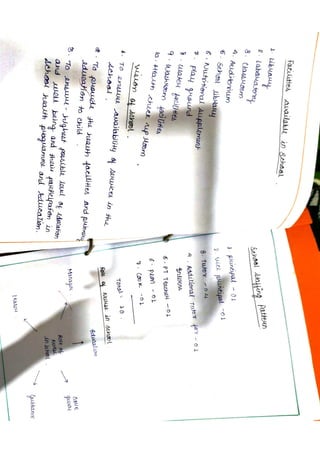 Facilities available in School.
1. Library
2. Laboratory
3. Classroom
4. Auditorium
5. School library
6. Nutritional supplement
7. Play ground
8. Water facilities
9. Washroom facilities
10. Health check up Room.
Vision of School.
1. To ensure availability of services in the
School.
2. To provide the health facilities and
education to child.
3. To ensure highest possible level of education
and well being and their participation in
school health programme and education.
School staffing Pattern
1. Principal - 01
2. Vice principal - 01
3. Tutor - 04
4. Additional Tutor for - 01
5. PT Teacher - 01
6. Peon - 01
7. Cook - 01
Total = 10.
Role of Nurse in school
Education
Manager
Role of
Nurse
in school
Care
giver
Leader
Guidance